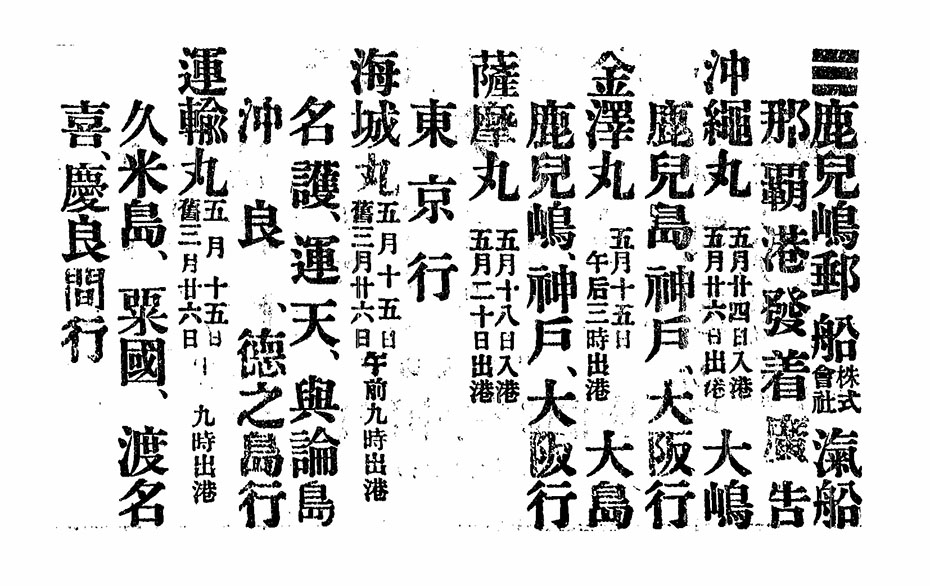 鹿兒嶋郵船株式會社滊船
那覇港發着廣告
沖繩丸 五月廿四日入港 五月廿六日出港 大嶋
鹿兒島、神戸、大阪行
金澤丸 五月十五日 午后三時出港 大島
鹿兒嶋、神戸、大阪行
薩摩丸 五月十八日入港 五月二十日出港
東京行
海城丸 五月十五日 舊三月廿六日 午前九時出港
名護、運天、與論島
沖良、德之島行
運輸丸 五月十五日 舊三月廿六日 九時出港
久米島、粟國、渡名
喜、慶良間行